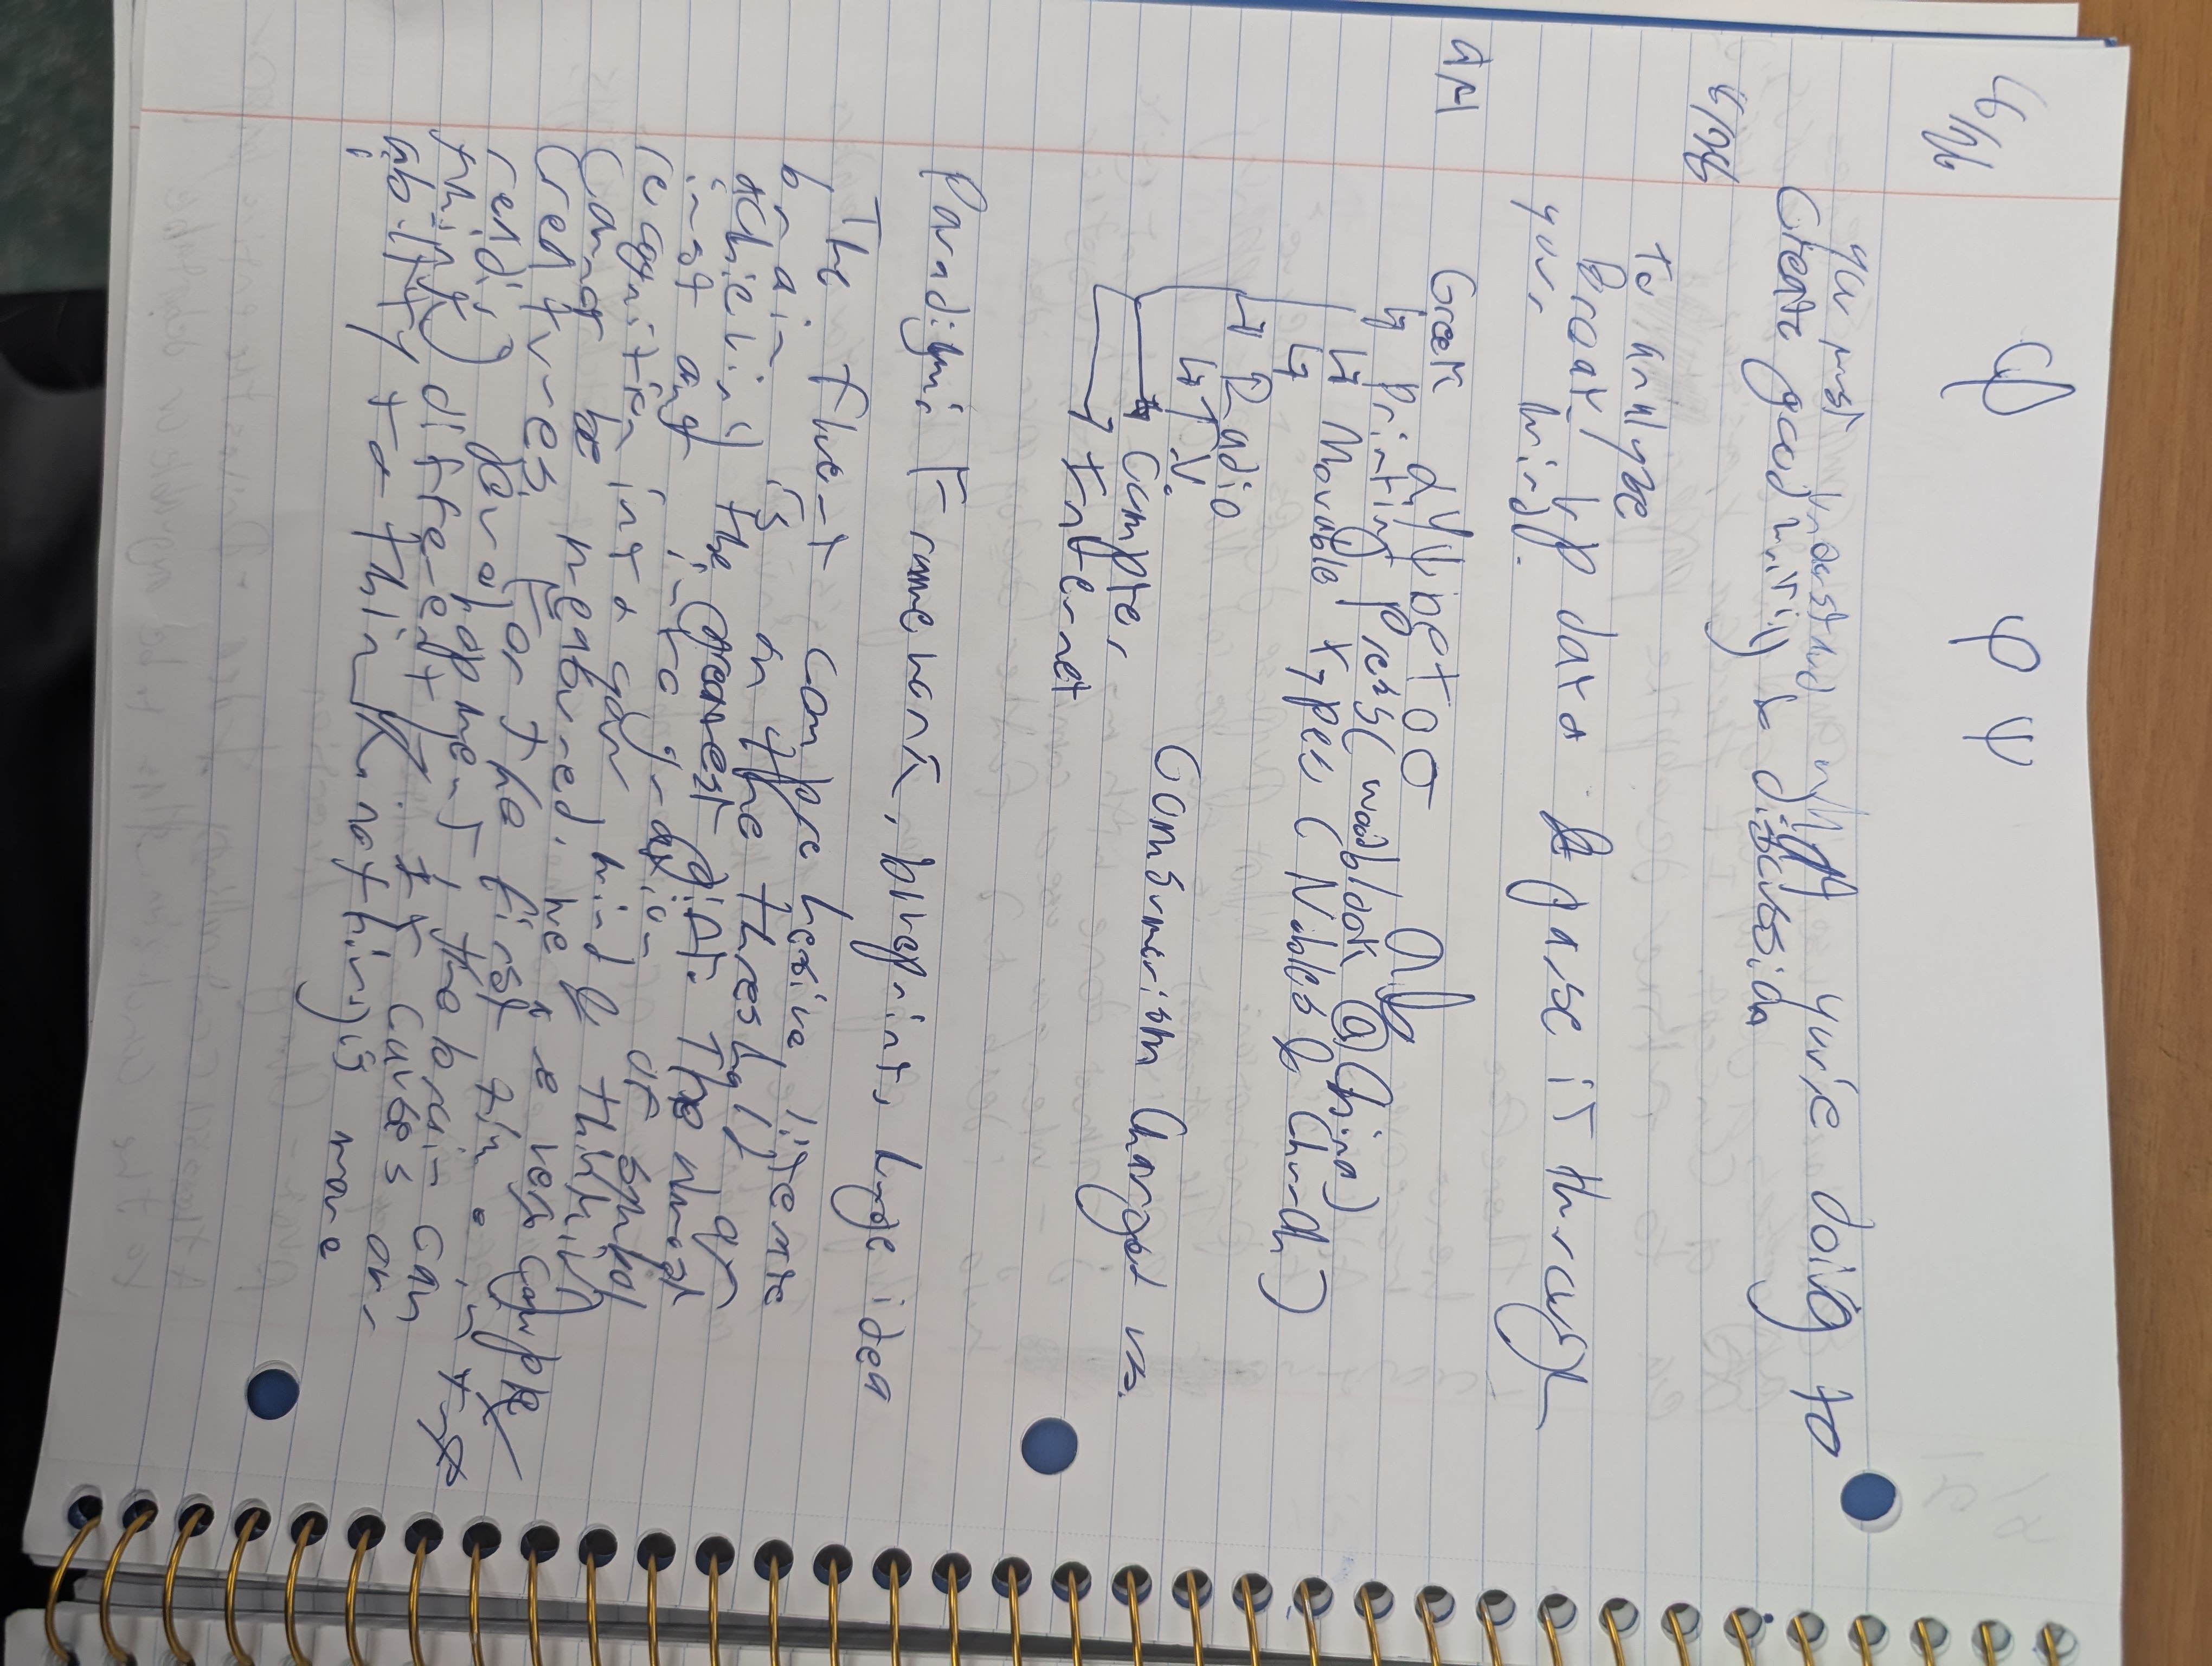 8/26
φ φ ψ
you must understand what you're doing to
Create good writing & discussion
8/28
To analyze
Break up data & parse it through
your mind.
Greek
↳ Printing Press (woodblook @ China)
↳ Movable types (Nobles & Church)
↳
↳ Radio
↳ T.V.
→ Compter
→ Internet
Comsumerism Changed vs.
Paradigm: Framework, blueprint, large idea
The fluent comprehesive, literate
brain. is on the threshold of
achieving the greatest gift. The almost
inst and intragration of symbol
recognition into your mind & thinking
Cannot be measured. we are very complex
Creatures. For the first time in the
reading development, the brain can
think differently. It causes our
ability to think. nothing is more